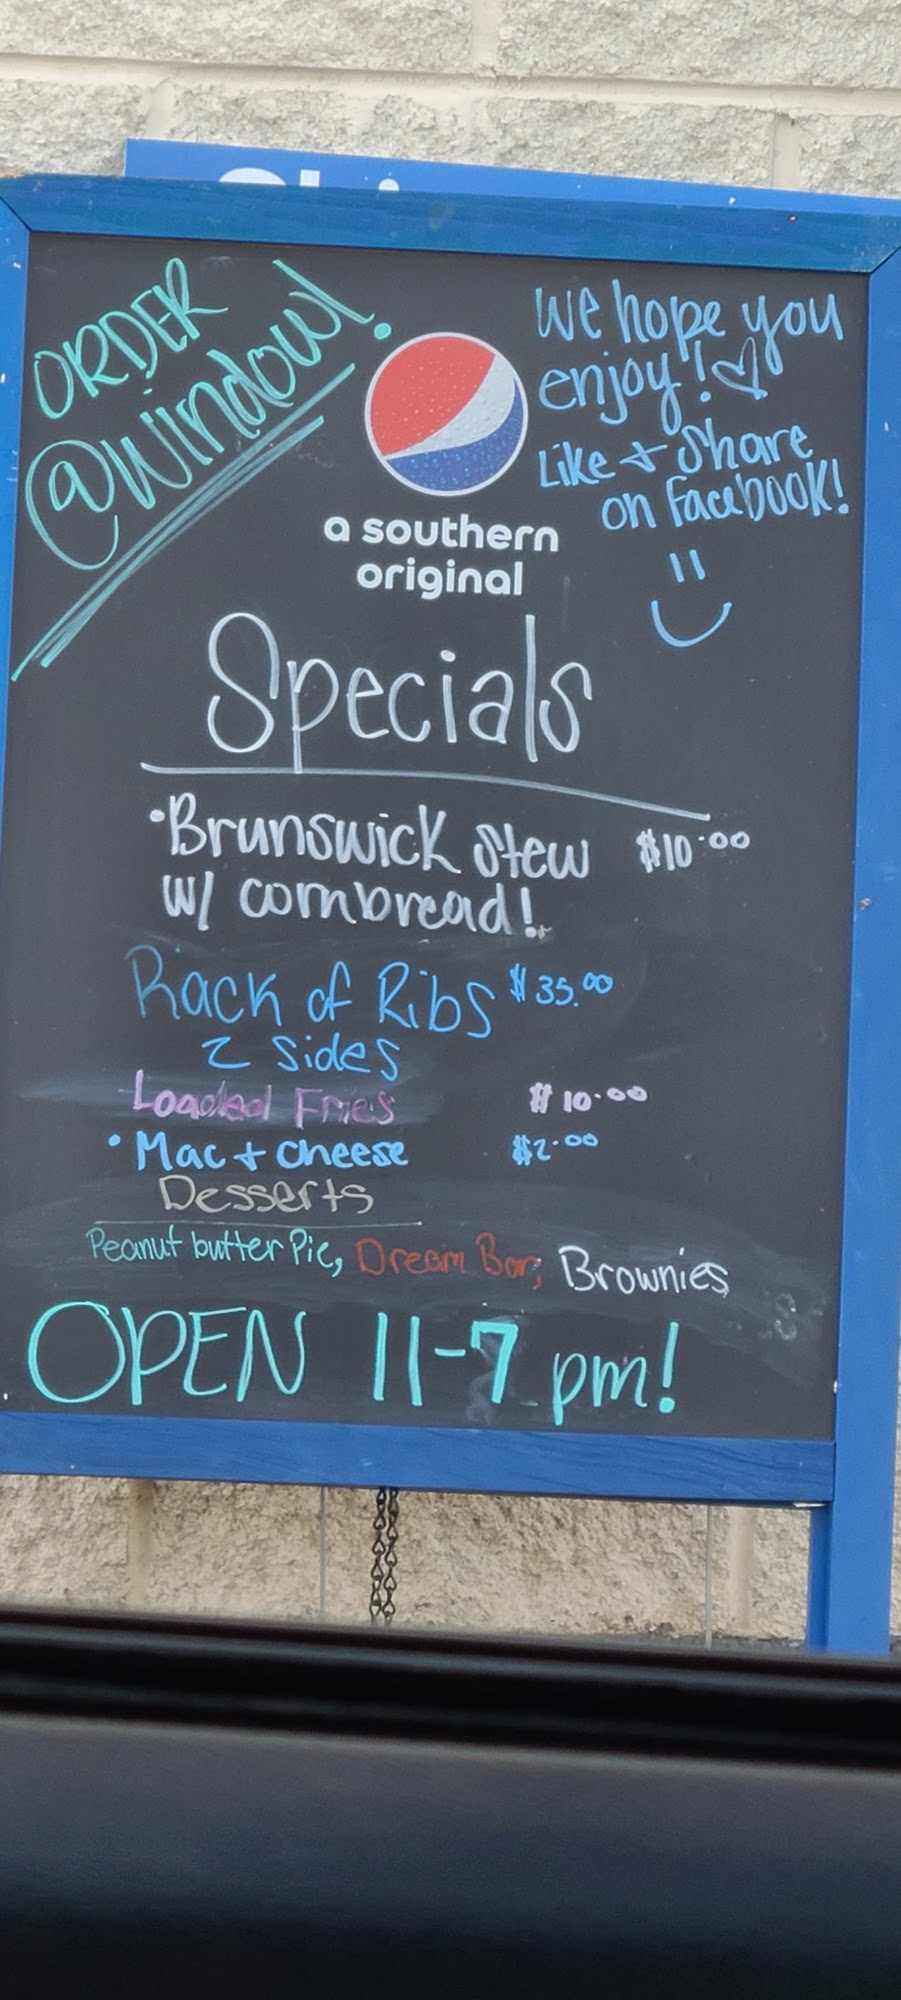 ORDER
@window!
We hope you
enjoy!
Like + Share
on Facebook!
a southern
original
Specials
• Brunswick Stew $10.00
w/ cornbread!
Rack of Ribs $35.00
2 sides
Loaded Fries $10.00
• Mac + cheese $2.00
Desserts
Peanut butter Pie, Dream Bar, Brownies
OPEN 11-7 pm!